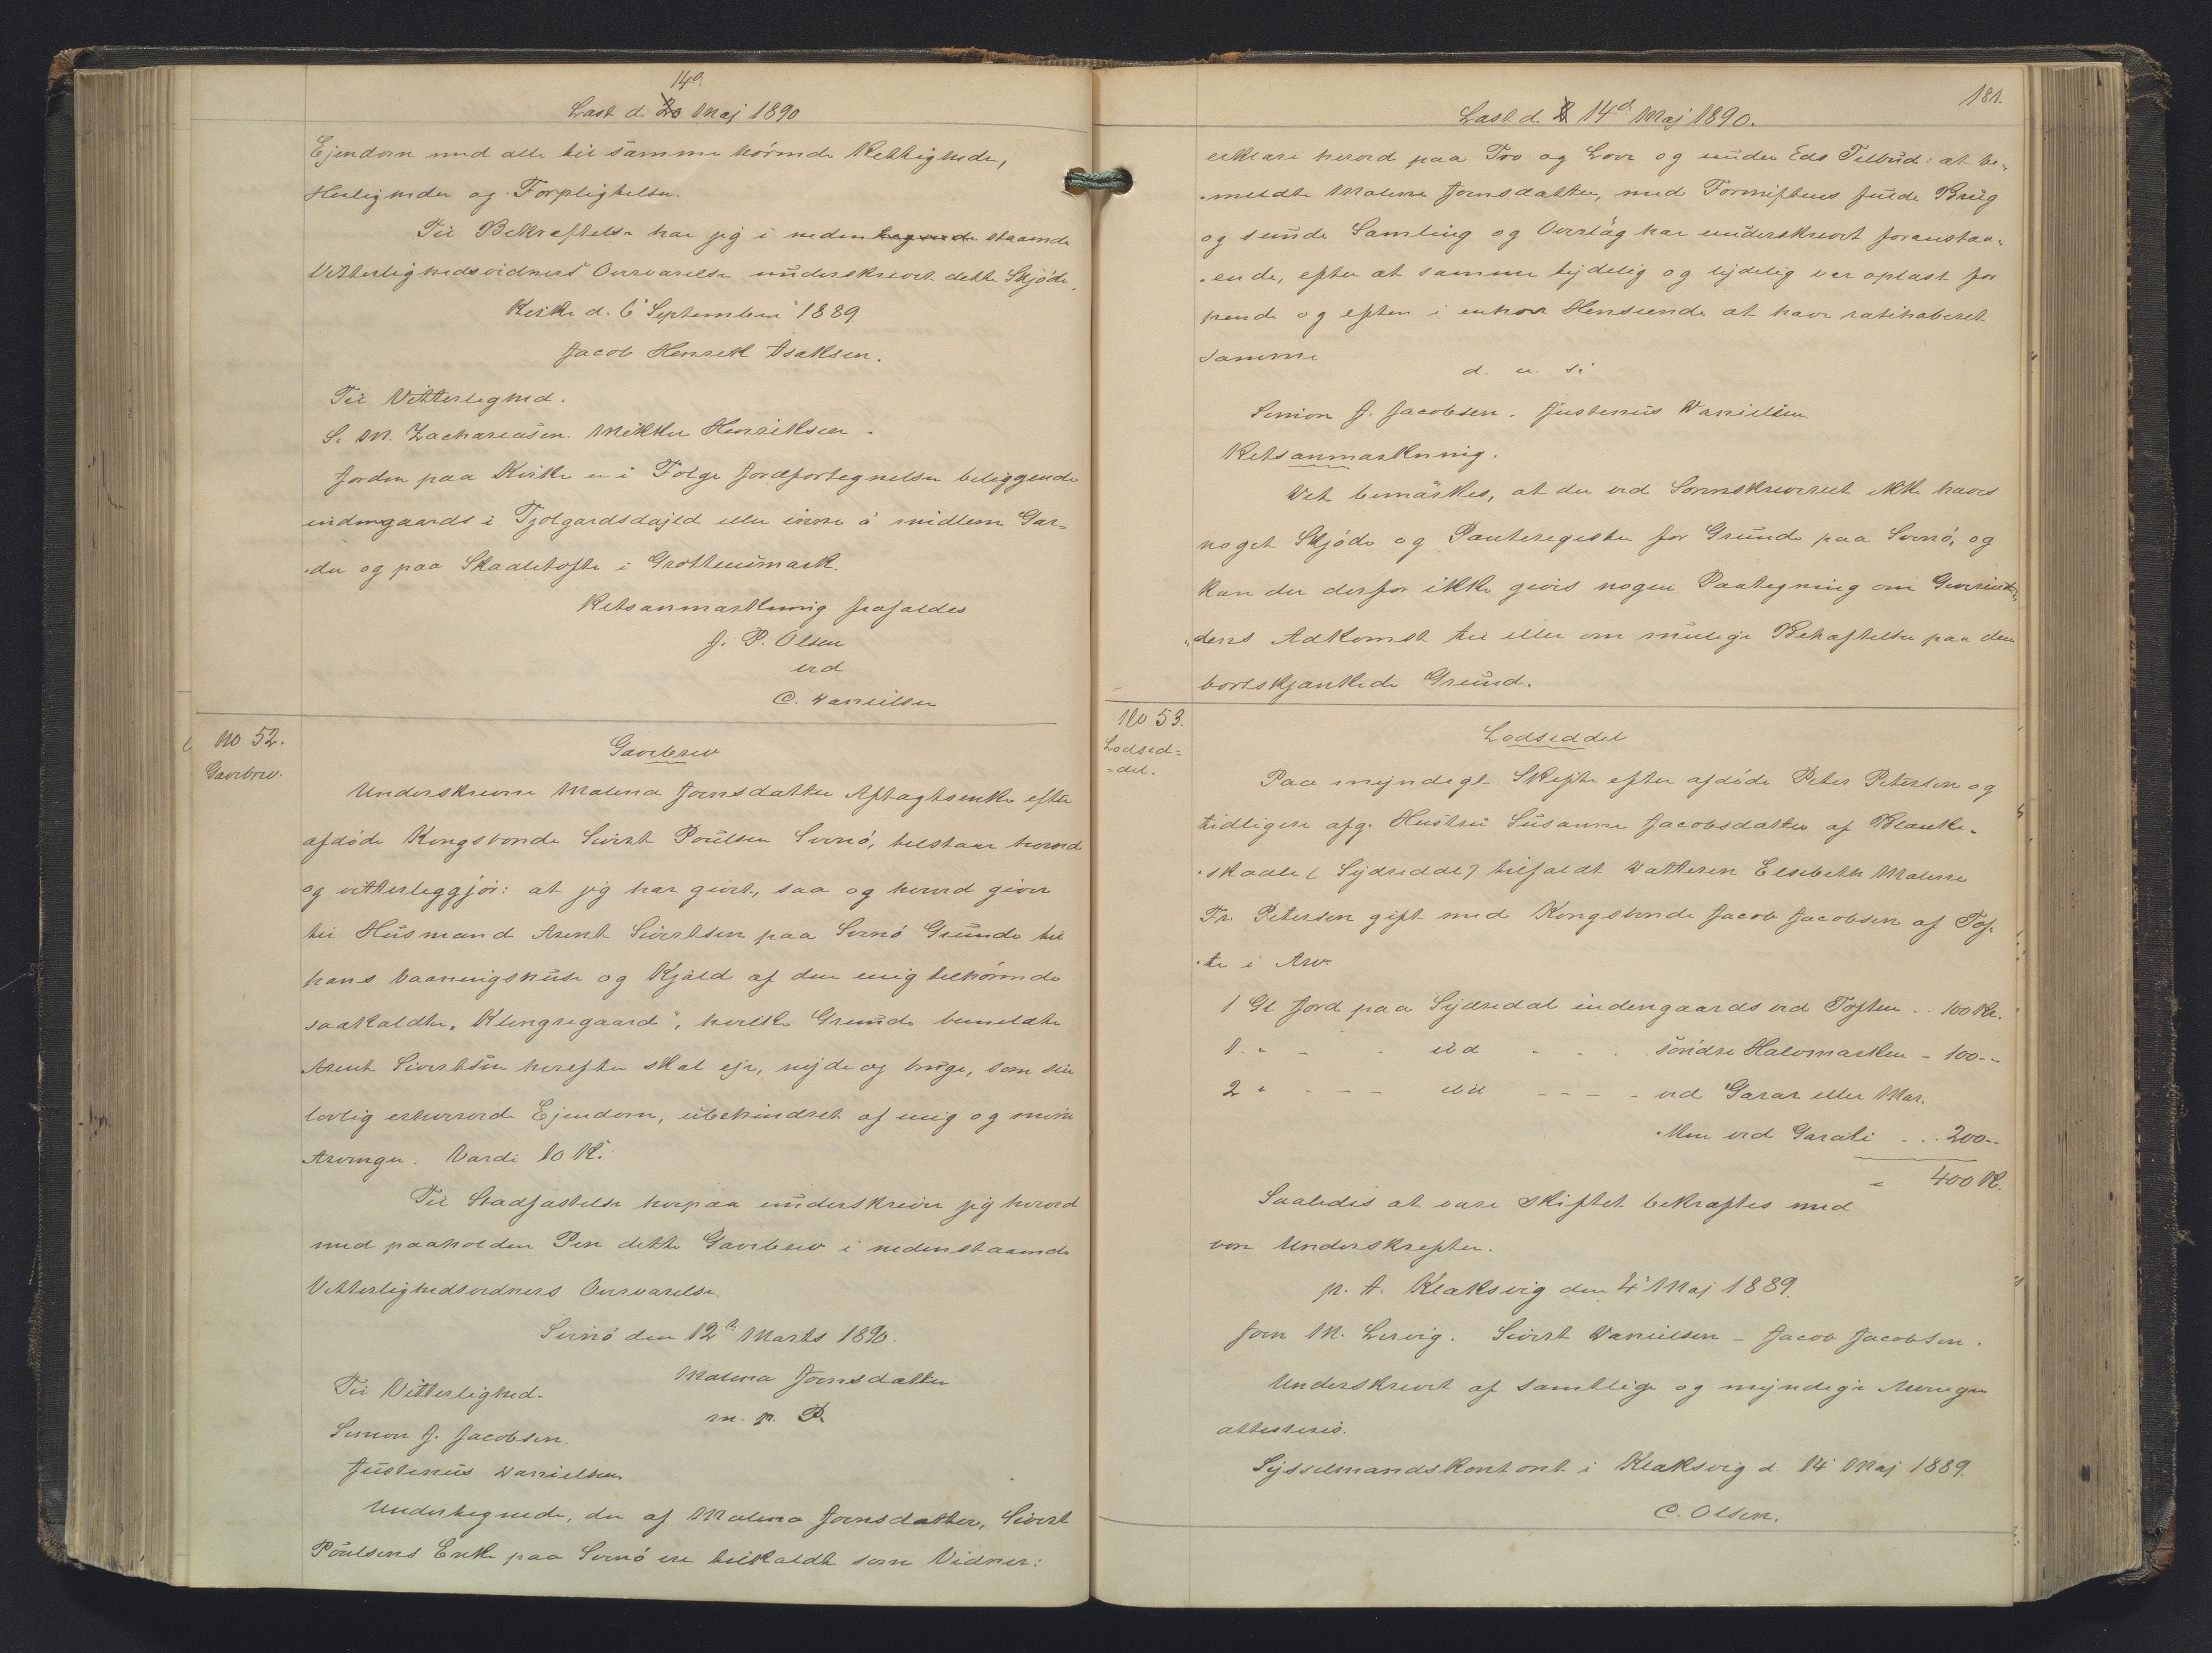 14d.
Læst d. 20 Maj 1890
Ejendom med alle til samme hørende Rettigheder,
Herligheder og Forpligtelser.
Til Bekræftelse har jeg i neden tegnede staaende
Vitterlighedsvidners Overværelse underskrevet dette Skjøde.
Kirke d. 6 September 1889
Jacob Henrik Isaksen.
Til Vitterlighed.
S. M. Zachariasen. Mikkel Henriksen.
Jorden paa Kirke er i Følge Jordfortegnelsen beliggende
indengaards i Tjolgardsdajld eller inne á midlem Gar-
-du og paa Skaaletofte i Grotheusmark.
Retsanmærkning frafaldes
J. P. Olsen
ved
C. Danielsen
No 52.
Gavebrev.
Gavebrev
Underskrevne Malena Joensdatter Aftægtsenke efter
afdøde Kongsbonde Sivert Poulsen Svinø, tilstaar herved
og vitterliggjør: at jeg har givet, saa og herved giver
til Husmand Arent Sivertsen paa Svinø Grunde til
hans Vaaningshuse og Kjæld af den mig tilhørende
saakaldte „Klingregaard“, hvilke Grunde bemeldte
Arent Sivertsen herefter skal eje, nyde og bruge, som sin
lovlig erhvervede Ejendom, ubehindret af mig og mine
Arvinger. Værdi 10 K.
Til Stadfæstelse herpaa underskriver jeg herved
med paaholden Pen dette Gavebrev i nedenstaaende
Vitterlighedsvidners Overværelse.
Svinø den 12te Marts 1890.
Malena Joensdatter
m. p. P.
Til Vitterlighed.
Simon J. Jacobsen.
Justinus Danielsen
Undertegnede, der af Malena Joensdatter, Sivert
Poulsens Enke paa Svinø ere tilkaldt som Vidner:
181.
Læst d. 2 14d Maj 1890.
erklære herved paa Tro og Love og under Eds Tilbud: at be-
-meldte Malene Joensdatter, med Fornuftens fulde Brug
og sunde Samling og Overlæg har underskrevet foranstaa-
-ende, efter at samme tydelig og lydelig var oplæst for
hende og efter i enhver Henseende at have ratihaberet
samme
d. u. s.
Simon J. Jacobsen. Justinus Danielsen
Retsanmærkning.
Det bemærkes, at der ved Sorenskriveriet ikke haves
noget Skjøde og Panteregister for Grunde paa Svinø, og
kan der derfor ikke gives nogen Paategning om Giverin-
-dens Adkomst til eller om mulige Behæftelser paa den
bortskjænkede Grund.
No 53.
Lodsed-
-del.
Lodseddel
Paa myndigt Skifte efter afdøde Peter Petersen og
tidligere afg. Hustru Susanne Jacobsdatter af Blanke-
-skaale (Sydredal) tilfaldt Datteren Elsebeth Malene
Fr. Petersen gift med Kongsbonde Jacob Jacobsen af Tof-
-te i Arv.
1 Gl. Jord paa Sydredal indengaards ved Toften .. 100 Kr.
1 " - - ud - - - søndre Halvmarken - 100 - -
2 " - - - ud - - - - ved Garar eller Mar.
Men ved Garali ... 200 - -
" 400 K.
Saaledes at være skiftet bekræftes med
vore Underskrifter.
p. t. Klaksvig den 4 Maj 1889.
Joen M. Lervig. Sivert Danielsen - Jacob Jacobsen.
Underskrevet af samtlige og myndige Arvinger
attesteres.
Sysselmandskontoret i Klaksvig d. 14 Maj 1889.
C. Olsen.